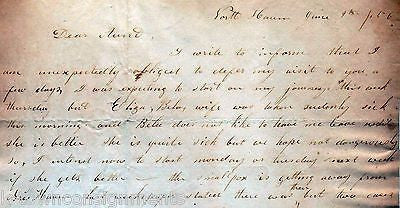 North Haven June 9th
Dear Aunt.
I write to inform that I
am unexpectedly obliged to defer my visit to you a
few days, I was expecting to start on my journey this week
thursday but Eliza, Belas wife was taken suddenly sick
this morning and Bela does not like to have me leave until
she is better She is quite sick but we hope not dangerously
so, I intend now to start monday or tuesday next week
if she gets better — the small pox is getting away from
Haven the newspaper stated there was but two cases